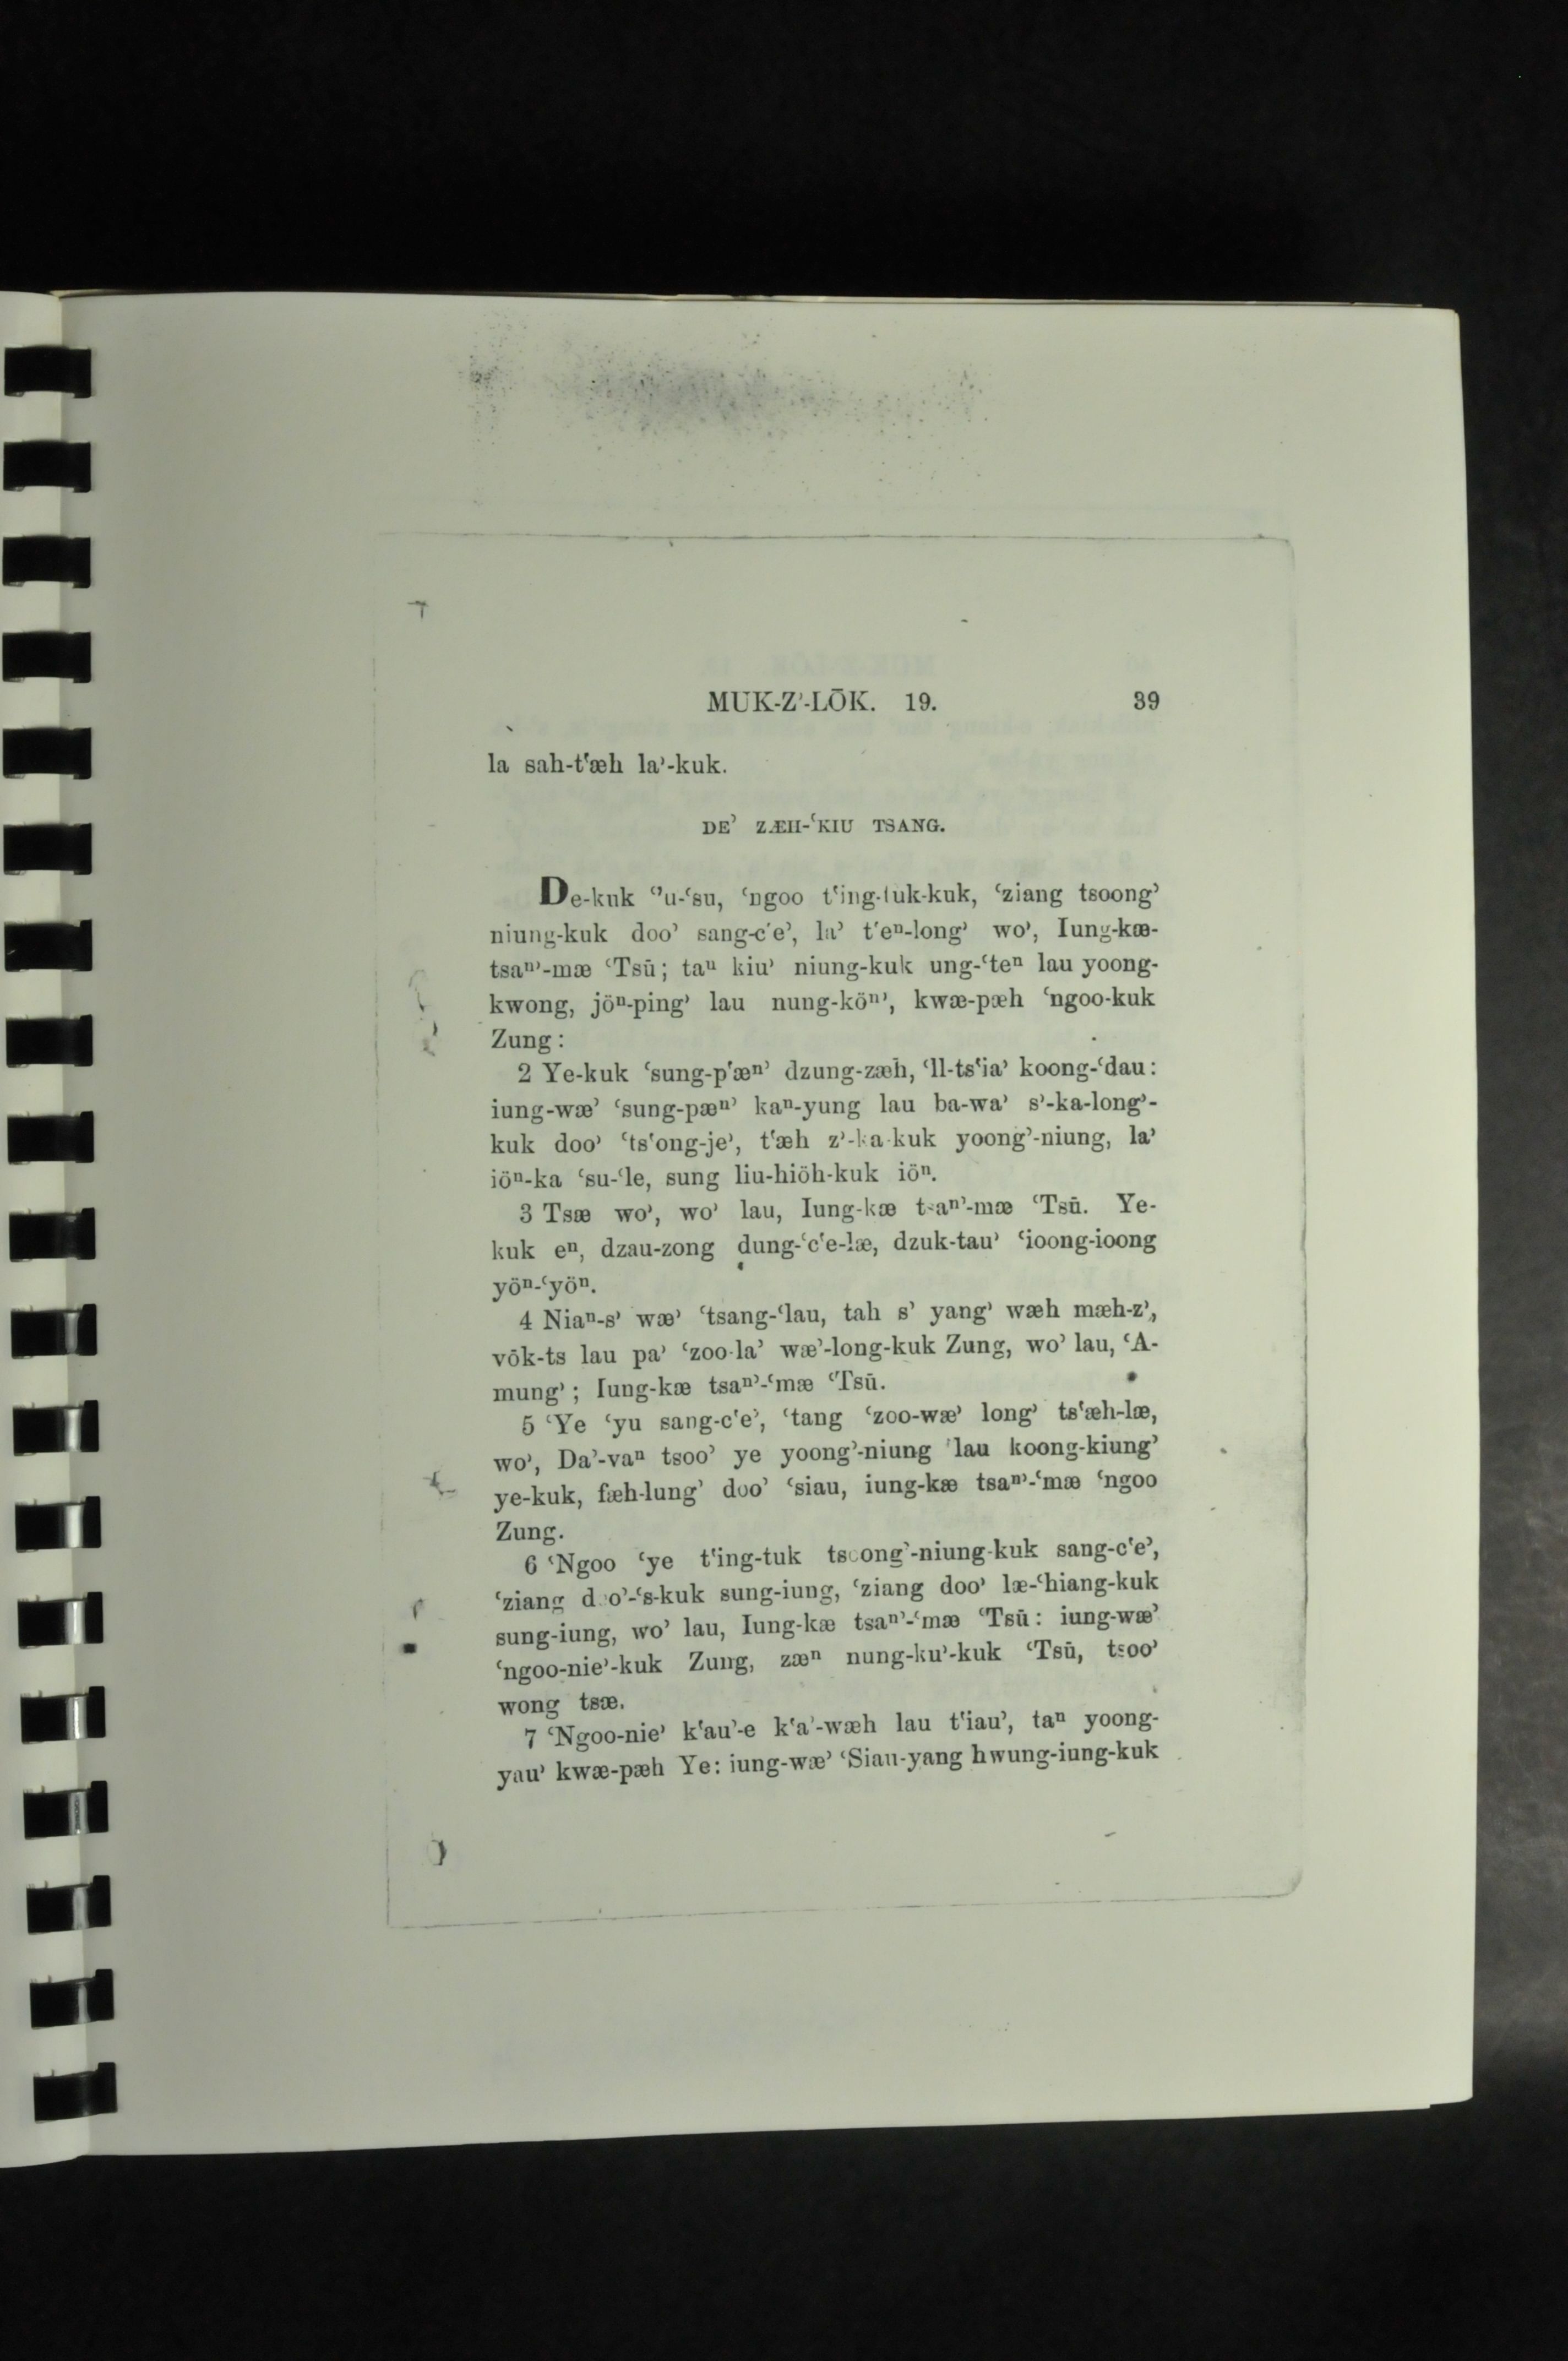 MUK-Z’-LŌK. 19. 39
la sah-t‘æh la’-kuk.
DE’ ZÆH-‘KIU TSANG.
De-kuk ‘’u-‘su, ‘ngoo t‘ing-tuk-kuk, ‘ziang tsoong’
niung-kuk doo’ sang-c‘e’, la’ t‘eⁿ-long’ wo’, Iung-kæ-
tsaⁿ’-mæ ‘Tsū; taⁿ kiu’ niung-kuk ung-‘teⁿ lau yoong-
kwong, jöⁿ-ping’ lau nung-köⁿ’, kwæ-pæh ‘ngoo-kuk
Zung:
2 Ye-kuk ‘sung-p‘æⁿ’ dzung-zæh, ‘ll-ts‘ia’ koong-‘dau:
iung-wæ’ ‘sung-pæⁿ’ kaⁿ-yung lau ba-wa’ s’-ka-long’-
kuk doo’ ‘ts‘ong-je’, t‘æh z’-ka-kuk yoong’-niung, la’
iöⁿ-ka ‘su-‘le, sung liu-hiöh-kuk iöⁿ.
3 Tsæ wo’, wo’ lau, Iung-kæ tsaⁿ’-mæ ‘Tsū. Ye-
kuk eⁿ, dzau-zong dung-‘c‘e-læ, dzuk-tau’ ‘ioong-ioong
yöⁿ-‘yöⁿ.
4 Niaⁿ-s’ wæ’ ‘tsang-‘lau, tah s’ yang’ wæh mæh-z’,
vōk-ts lau pa’ ‘zoo-la’ wæ’-long-kuk Zung, wo’ lau, ‘A-
mung’; Iung-kæ tsaⁿ’-‘mæ ‘Tsū.
5 ‘Ye ‘yu sang-c‘e’, ‘tang ‘zoo-wæ’ long’ ts‘æh-læ,
wo’, Da’-vaⁿ tsoo’ ye yoong’-niung lau koong-kiung’
ye-kuk, fæh-lung’ doo’ ‘siau, iung-kæ tsaⁿ’-‘mæ ‘ngoo
Zung.
6 ‘Ngoo ‘ye t‘ing-tuk tsoong’-niung-kuk sang-c‘e’,
‘ziang doo’-‘s-kuk sung-iung, ‘ziang doo’ læ-‘hiang-kuk
sung-iung, wo’ lau, Iung-kæ tsaⁿ’-‘mæ ‘Tsū: iung-wæ’
‘ngoo-nie’-kuk Zung, zæⁿ nung-ku’-kuk ‘Tsū, tsoo’
wong tsæ.
7 ‘Ngoo-nie’ k‘au’-e k‘a’-wæh lau t‘iau’, taⁿ yoong-
yau’ kwæ-pæh Ye: iung-wæ’ ‘Siau-yang hwung-iung-kuk